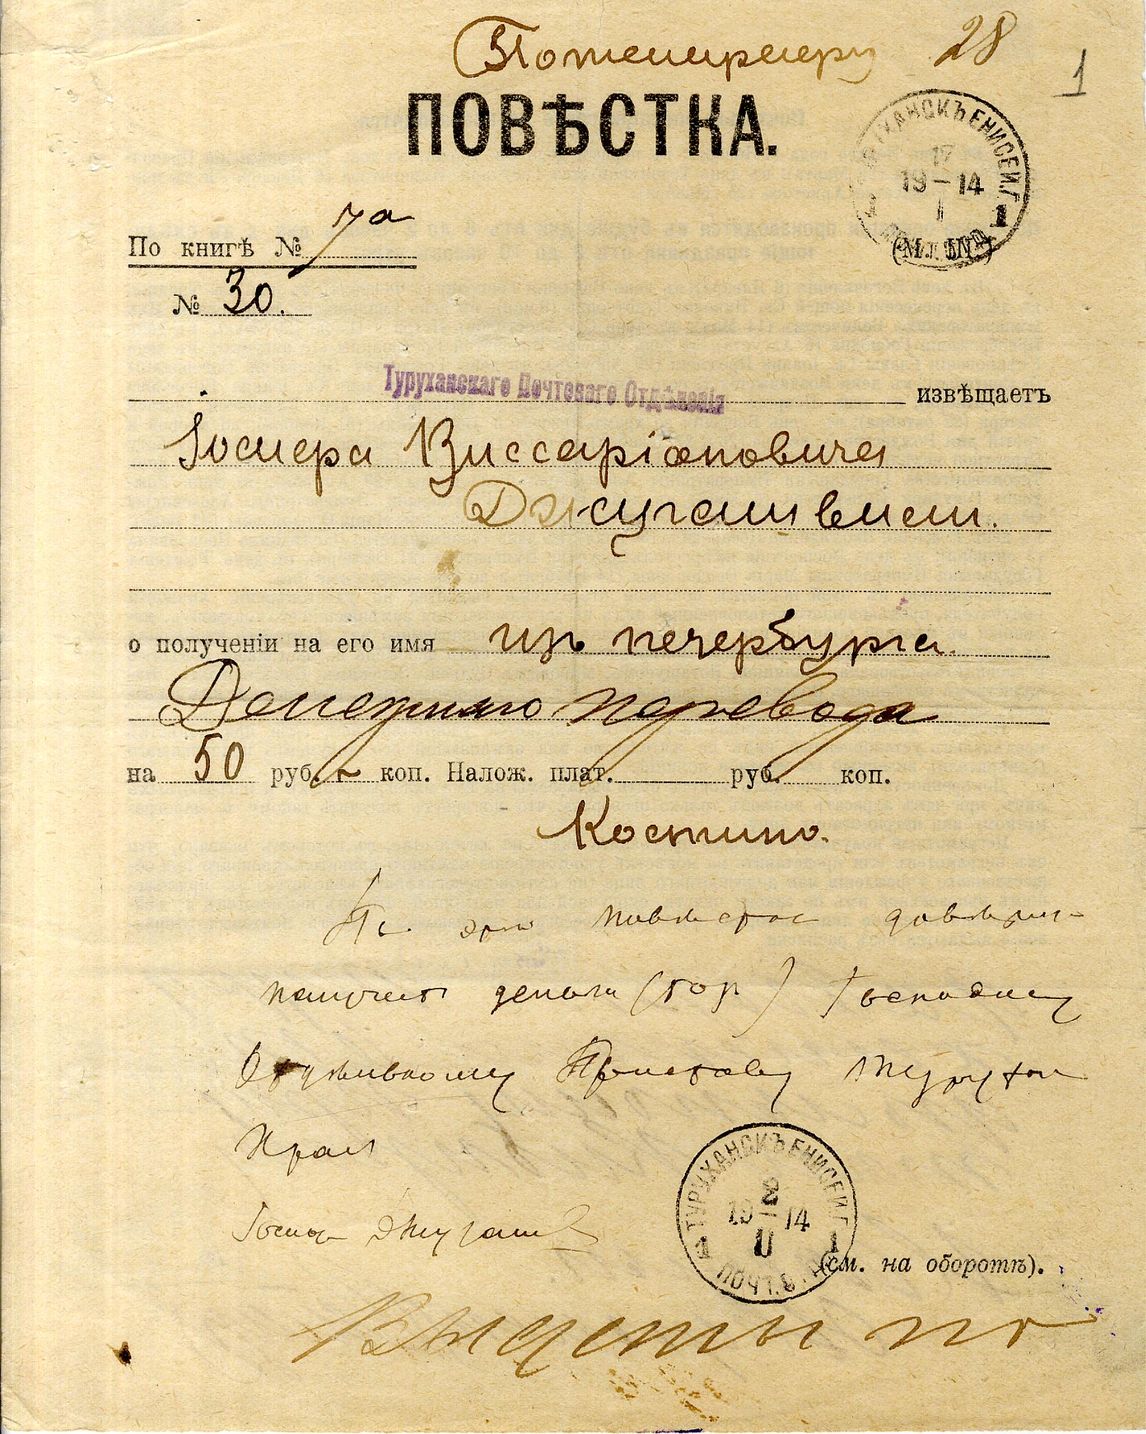 28
1
ПОВѢСТКА.
ТУРУХАНСКЪ ЕНИСЕЙ. Г.
19 14
По книгѣ № 7а
№ 30.
Туруханскаго Почтоваго Отдѣленія извѣщаетъ
Іосифа Виссаріоновича
Джугашвили.
о полученіи на его имя изъ петербурга.
Денежнаго перевода
на 50 руб. – коп. Налож. плат. руб. коп.
Костино.
На эту повестку доверяю
получить деньги (50 р) Господину
Отдельному Приставу Турухан
Края
Іосиф Джугашв
ТУРУХАНСКЪ ЕНИСЕЙ. Г.
2
19 14
II
(см. на оборотѣ).